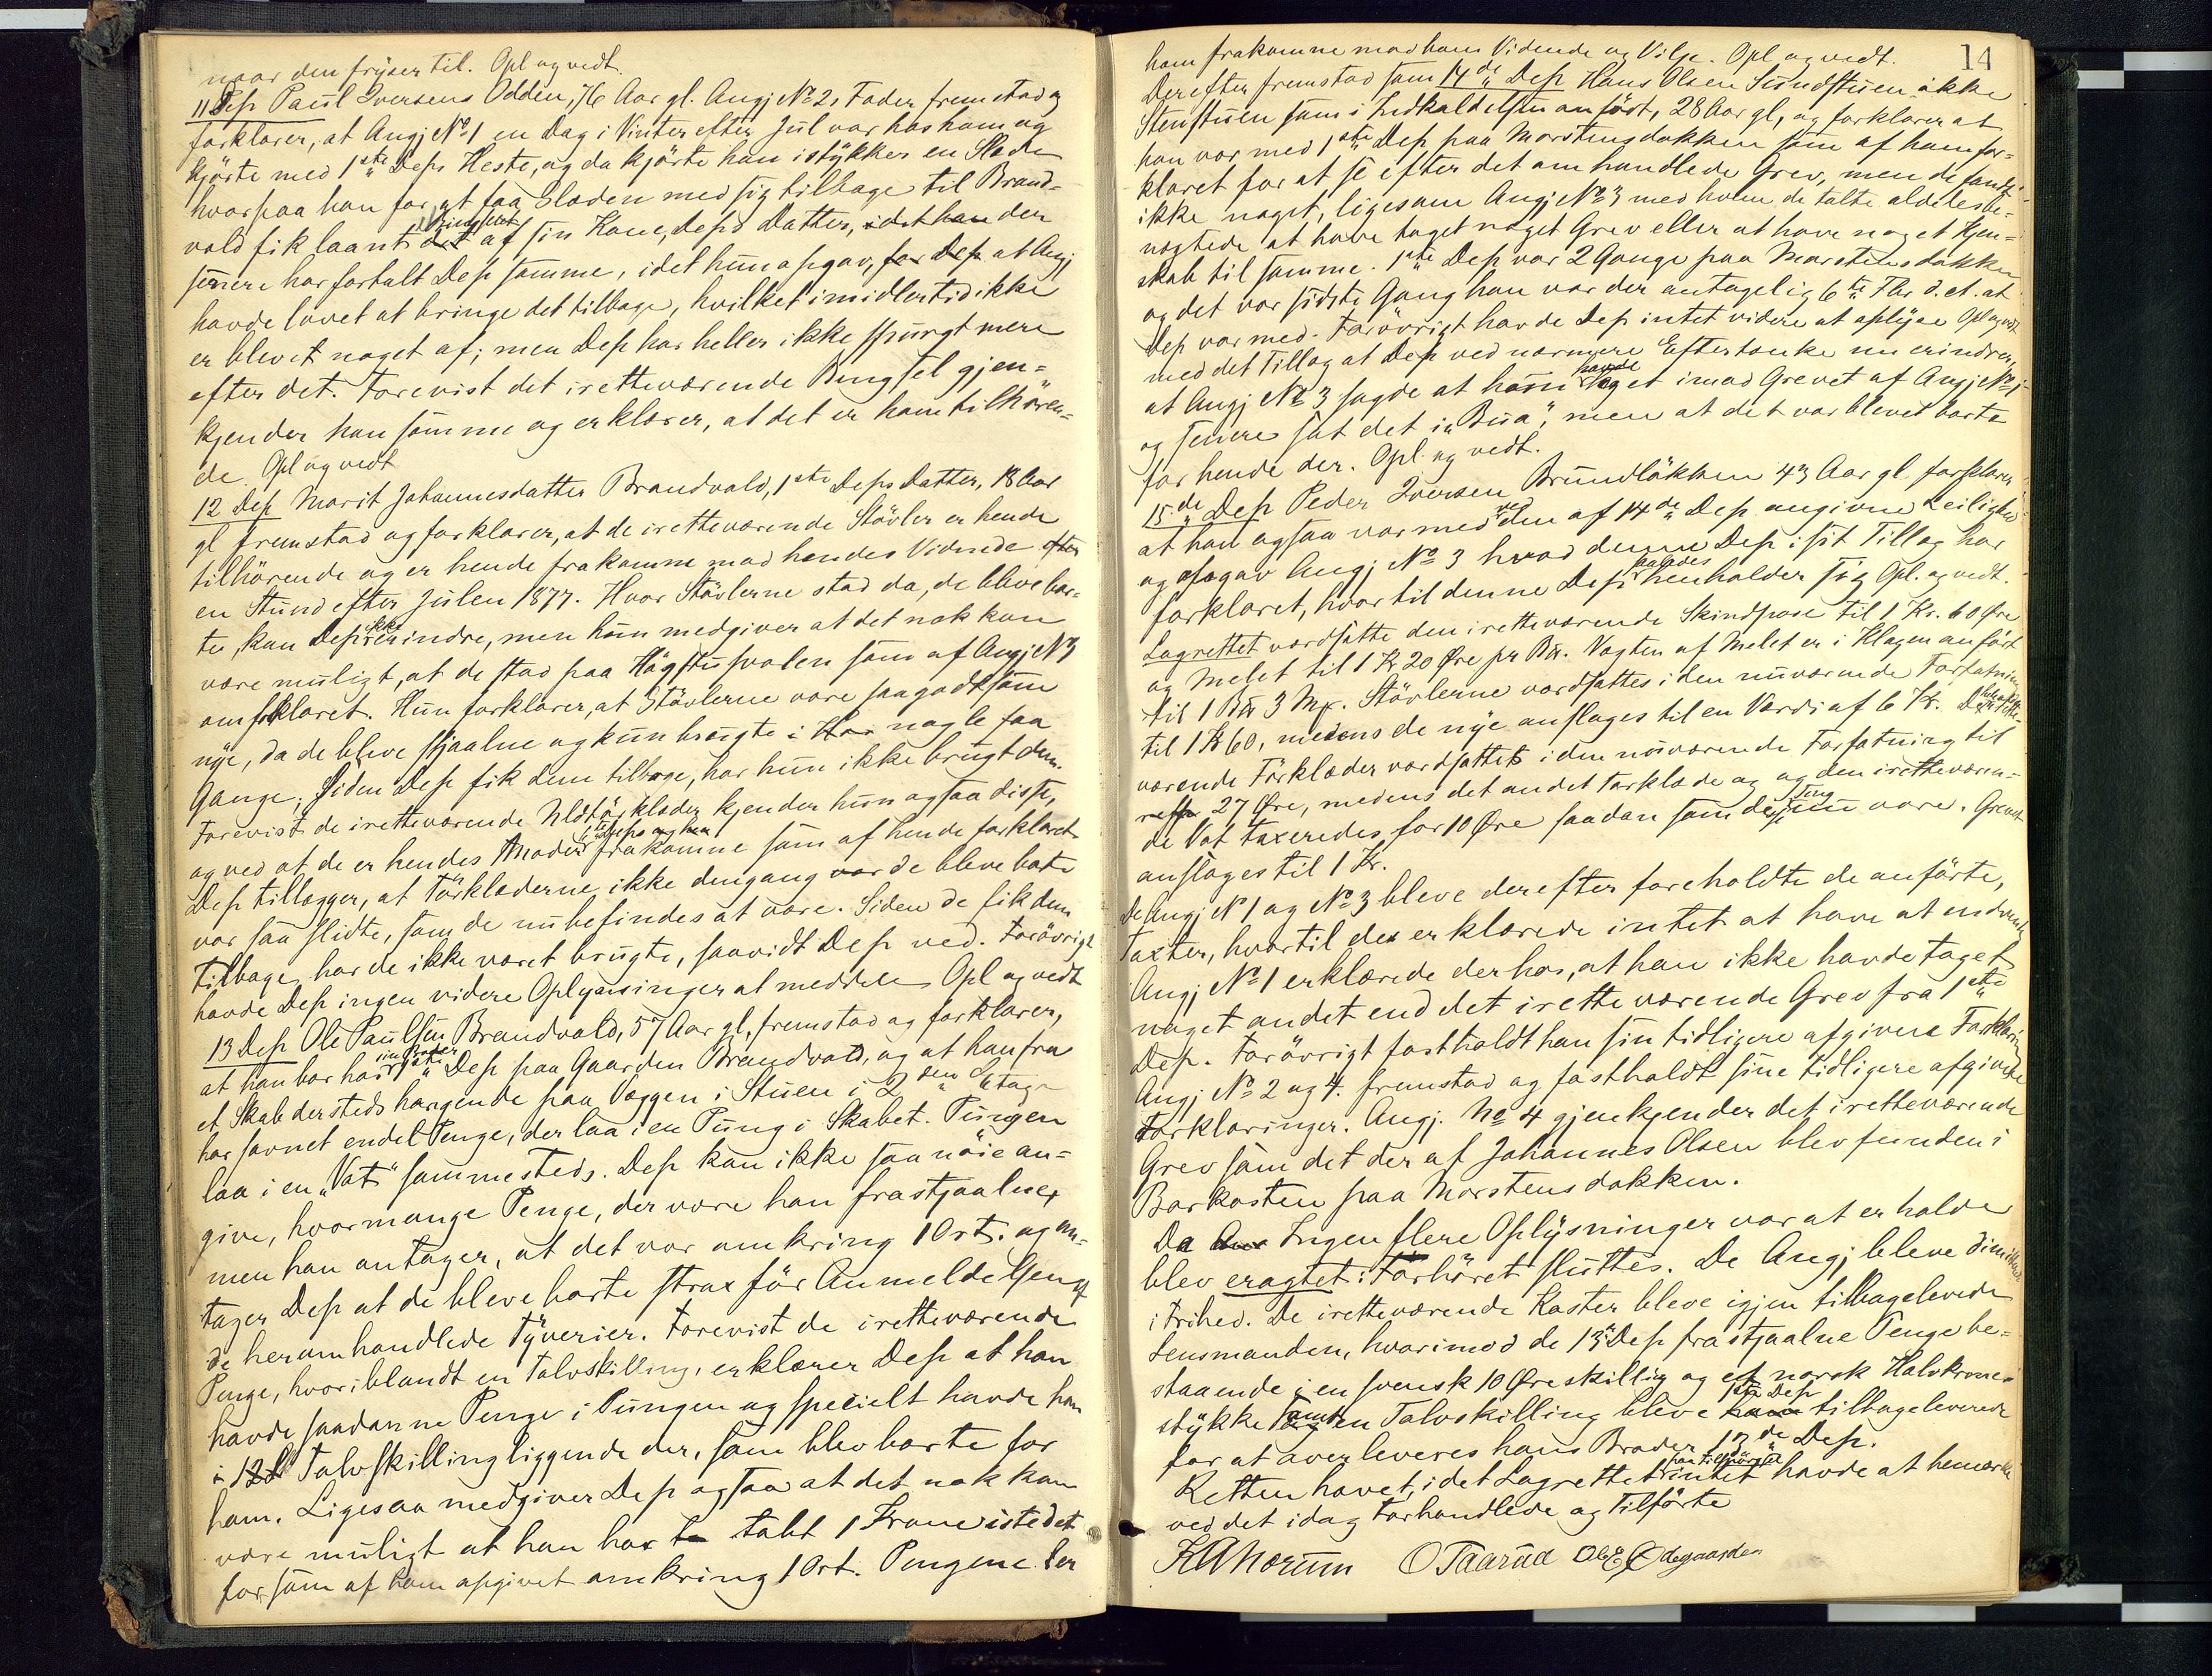 naar den fryser til. Opl og vedt.
11 Dep Paul Iversens Odden, 76 Aar gl. Angj No 2, Fader fremstod og
forklarer, at Angj No 1 en Dag i Vinter efter Jul var hos ham og
kjørte med 1ste Deps Heste, og da kjørte han istykker en Slæde
hvorpaa han for at faa Slæden med sig tilbage til Brand-
vold fik laant det Bingslet af sin Kone, Deps Datter, idet han der
senere har fortalt Dep samme, idet hun opgav, for Dep at Angj
havde lovet at bringe det tilbage, hvilket imidlertid ikke
er blevet noget af; men Dep har heller ikke spurgt mere
efter det. Forevist det iretteværende Bingsel gjen-
kjender han samme og erklærer, at det er ham tilhøren-
de. Opl og vedt
12 Dep Marit Johannesdatter Brandvold, 1ste Deps Datter, 18 Aar
gl fremstod og forklarer, at de iretteværende Støvler er hende
tilhørende og er hende frakomne mod hendes Vidende efter
en Stund efter Julen 1877. Hvor Støvlerne stod da, de bleve bor-
te, kan Dep ikke erindre, men hun medgiver at det nok kan
være muligt, at de stod paa Høgstusvalen som af Angj No 3
omforklaret. Hun forklarer, at Støvlerne vare saagodt som
nye, da de bleve stjaalne og kun brugte i Har nogle faa
Gange; Siden Dep fik dem tilbage, har hun ikke brugt dem.
Forevist de iretteværende Uldtørklæder kjender hun ogsaa disse,
og ved at de er hendes Moder 1ste Deps og hen frakomne som af hende forklaret
Dep tillægger, at Tørklæderne ikke dengang var de bleve borte
var saa slidte, som de nu befindes at være. Siden de fik dem
tilbage har de ikke været brugte, saavidt Dep ved. Forøvrigt
havde Dep ingen videre Oplysninger at meddele Opl og vedt
13 Dep Ole Paulsen Brandvold, 57 Aar gl, fremstod og forklarer,
at han bor hos sin Broder 1ste Dep paa Gaarden Brandvold, og at han fra
et Skab dersteds hængende paa Væggen i Stuen i 2den Etage
har savnet endel Penge, der laa i en Pung i Skabet. Pungen
laa i en "Vot" sammesteds. Dep kan ikke saa nøie an-
give, hvormange Penge, der vare han frastjaalne,
men han antager, at det var omkring 1 Ort. og an-
tager Dep at de bleve borte strax før Anmeldelsen af
de heromhandlede Tyverier. Forevist de iretteværende
Penge, hvoriblandt en Tolvskilling, erklærer Dep at han
havde saadanne Penge i Pungen og specielt havde han
1 Tolvskilling liggende der, som blev borte for
ham. Ligesaa medgiver Dep ogsaa at det nok kan
være muligt at han har ta tabt 1 Krone istedet
for, som af ham opgivet omkring 1 Ort. Pengene er
14
ham frakomne mod hans Vidende og Vilje. Opl og vedt.
Derefter fremstod som 14de Dep Hans Olsen Sundstuen ikke
Stenstuen som i Indkaldelsen anført, 28 Aar gl, og forklarer at
han var med 1ste Dep paa Morstensdokken som af ham for-
klaret for at se efter det omhandlede Grev, men de fandt
ikke noget, ligesom Angj No 3 med hvem de talte aldeles be-
nægtede at have taget noget Grev eller at have noget Kjen-
skab til samme. 1ste Dep var 2 Gange paa Morstensdokken
og det var sidste Gang han var der antagelig 6te Fbr d. A. at
Dep var med. Forøvrigt havde Dep intet videre at oplyse Opl og vedt
med det Tillæg at Dep ved nærmere Eftertanke nu erindrer,
at Angj No 3 sagde at hun havde taget imod Grevet af Angj No 1
og senere sat det i "Bua", men at det var blevet borte
for hende der. Opl. og vedt.
15de Dep Peder Iversen Brundløkken 43 Aar gl forklarer
at han ogsaa var med ved den af 14de Dep angivne Leilighed
og opgav Angj No 3 hvad denne Dep i sit Tillæg har
forklaret, hvortil denne Dep saaledes henholder sig Opl. og vedt.
Lagrettet værdsatte den iretteværende Skindpose til 1 Kr. 60 Øre
og Melet til 1 Kr 20 Øre pr B℔. Vægten af Melet er i Klagen anført
til 1 B℔ 3 Mk. Støvlerne værdsattes i den nuværende Forfatning
til 1 Kr 60, medens de nye anslages til en Værdi af 6 Kr. De iretteværende
værende Tørklæder værdsattes i den nuværende Forfatning til
27 Øre, medens det andet Tørklæde og og den iretteværen-
de Vot taxeredes for 10 Øre saadan som de Ting nu vare. Grevet
anslages til 1 Kr.
De Angj No 1 og No 3 bleve derefter foreholdte de anførte,
Taxter, hvortil de erklærede intet at have at indvende
Angj No 1 erklærede derhos, at han ikke havde taget
noget andet end det iretteværende Grev fra 1ste
Dep. Forøvrigt fastholdt han sin tidligere afgivne Forklaring
Angj No 2 og 4. fremstod og fastholdt sine tidligere afgivne
Forklaringer. Angj. No 4 gjenkjender det iretteværende
Grev som det der af Johannes Olsen blev funden i
Barkosten paa Morstensdokken.
Da Ang Ingen flere Oplysninger var at erholde
blev eragtet: Forhøret sluttes. De Angj bleve dimitteret
i Frihed. De iretteværende Koster bleve igjen tilbageleverede
Lensmanden, hvorimod de 13de Dep frastjaalne Penge be-
staaende i en svensk 10 Øreskilling og et norsk Halvkrone-
stykke samt en Tolvskilling bleve ham 1ste Dep tilbageleverede
for at overleveres hans Broder 13de Dep.
Retten hævet, idet Lagrettet paa Tilspørgsel intet havde at bemærke
ved det idag Forhandlede og Tilførte
KAHorum O Taarud Ole E Ødegaarden